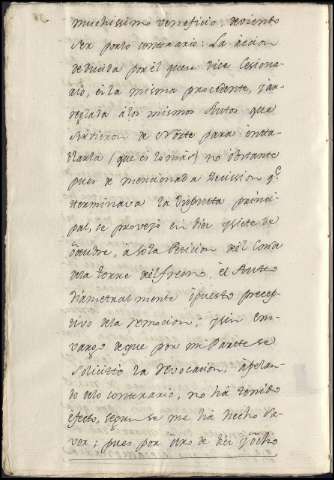 muchissimo veneficio, deviento
ser por lo contrario: La accion
deducida por el que dice Cesiona
rio, es la misma procedente, y ar
reglada a los mismos Autos que
sirvieron de Norte para enta
blarla (que es lo mas) no obstante
pues de mencionada Decission qe
terminava la disputa princi
pal, se proveyó en diez y siete de
octubre, a sola Peticion del Conde
de la Torre del fresno, el Auto
diametralmente opuesto precep
tivo de la remocion; y sin em
vargo de que por mi Parte se
solicitó la revocacion, apelan
do de lo contrario, no ha tenido
efecto, segun se me ha hecho sa
ver; pues por otro de diez y ocho